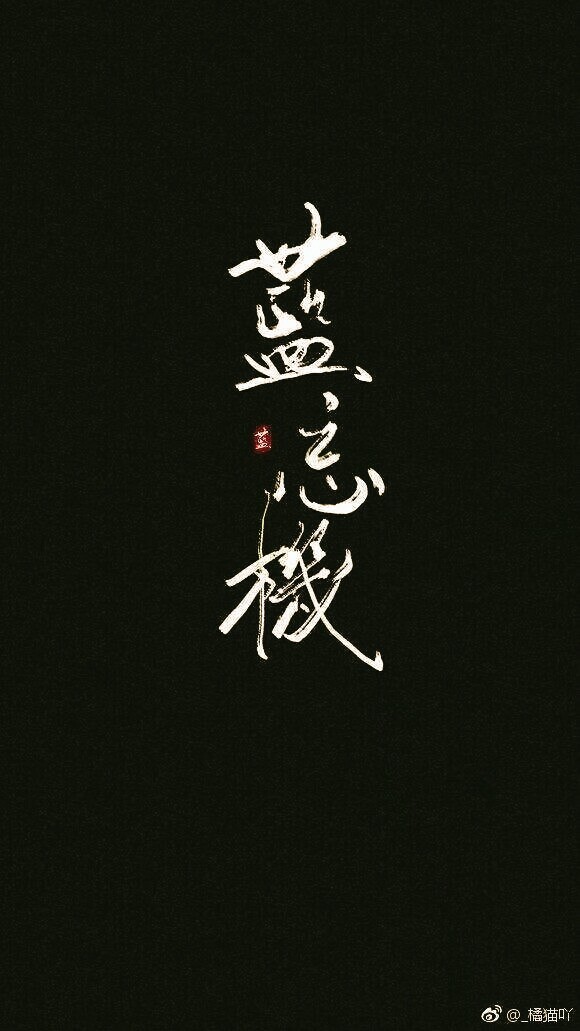 藍忘機
藍
@_橘猫吖